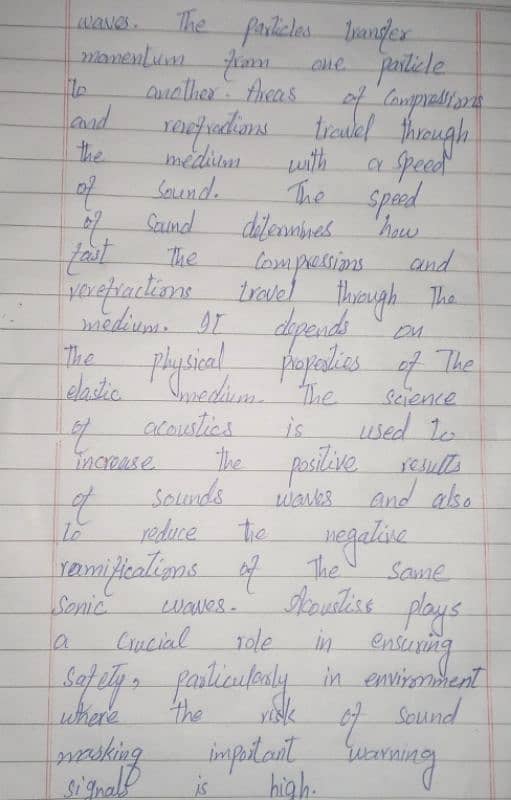 waves. The particles transfer
momentum from one particle
to another. Areas of Compressions
and rerefractions travel through
the medium with a speed
of Sound. The speed
of Sound determines how
fast The Compressions and
rerefractions travel through The
medium. It depends on
The physical properties of The
elastic medium. The science
of acoustics is used to
increase The positive results
of sounds waves and also
to reduce tie negative
ramifications of The same
Sonic waves. Acoustiss plays
a Crucial role in ensuring
Safety, particularly in environment
where the risk of Sound
masking important warning
signals is high.